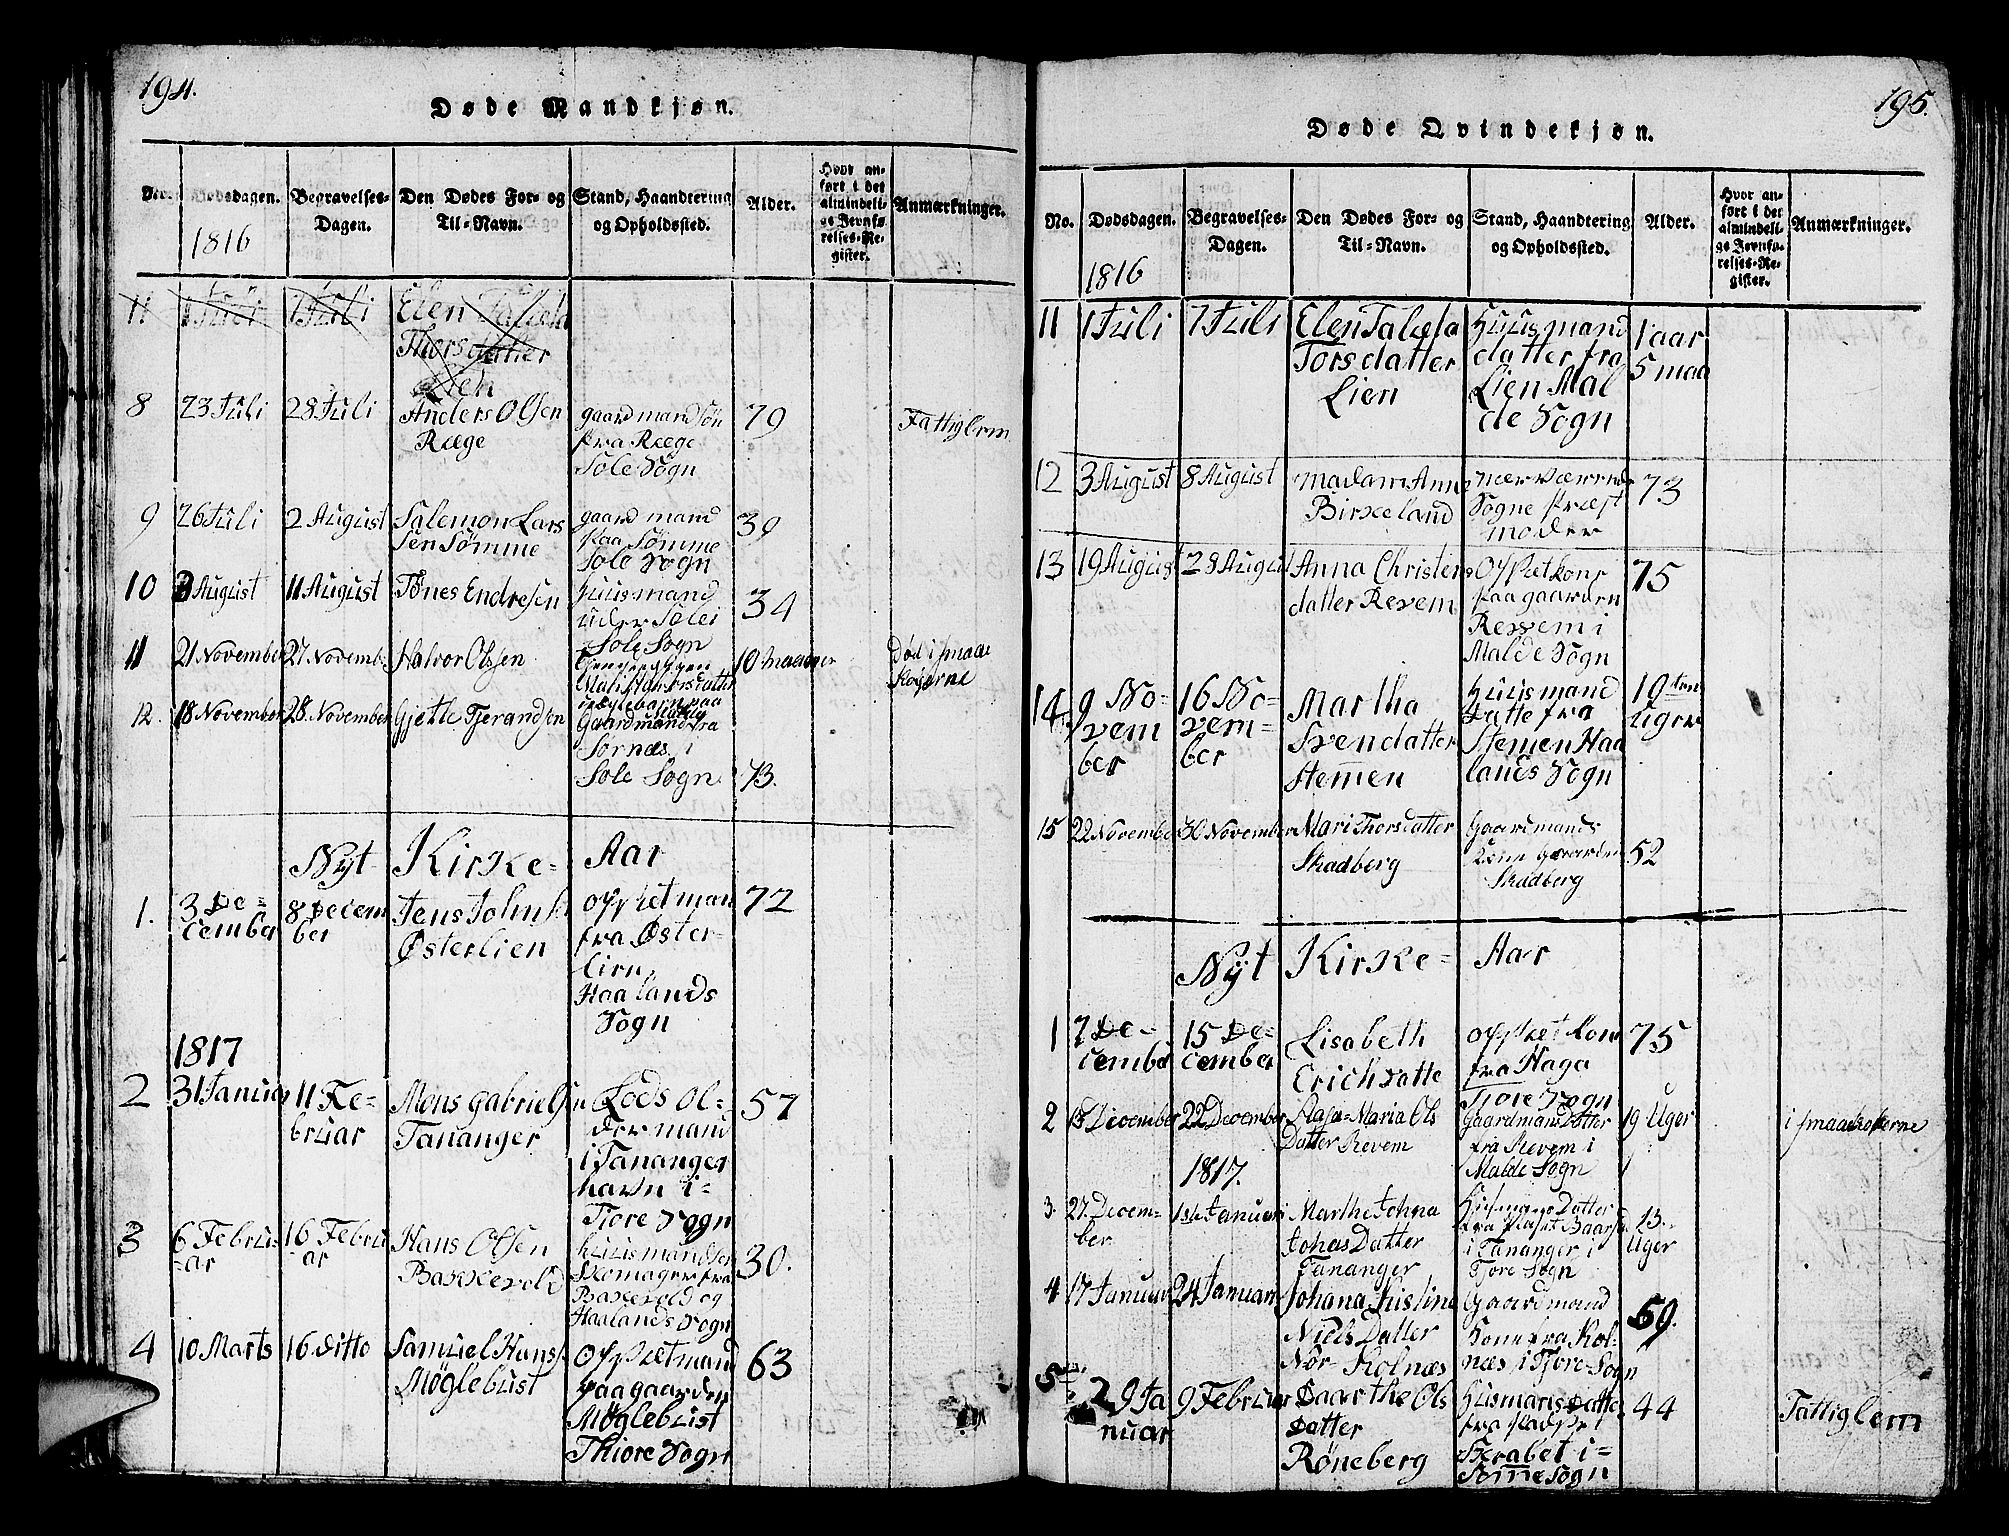 194.
Døde Mandkjøn.
No.
Dødsdagen.
1816
Begravelses-
Dagen.
Den Dødes For- og
Til-Navn.
Stand, Haandtering
og Opholdssted.
Alder.
Hvor an-
ført i det
almindeli-
ge Jevnfø-
relses-Re-
gister.
Anmærkninger.
11 1 Juli 7 Juli Elen Talleta
Thorsdatter
Lien
8 23 Juli 28 Juli Anders Olsen
Ræge
gaard mand Søn
fra Ræge
Sole Sogn
79
Fattiglem
9 26 Juli 2 August Salemon Lars
sen Sømme
gaard mand
paa Sømme
Sole Sogn
39
10 3 August 11 August Tønes Endresen
Huusmand
under Solei
Sole Sogn
34
11 21 November 27 November Halvor Olsen
10 maaner
Død i smaae
Kopperne
12. 18 November 28 November Gjetle Tjerandsen
Gaardmand fra
Sørnæs i
Sole Sogn
73.
Nyt Kirke- Aar
1. 3 De-
cember
8 Decem
ber
Jens Johns
Østerlien
opsket man
fra Øster-
lien,
Haalands
Sogn
72
1817
2 31 Januar 11 Fe-
bruar
Mons gabriels
Tananger
Lods Ol-
der mand
i Tananger
havn i-
Tjore Sogn
57
3 6 Febru-
-ar
16 Febru
-ar
Hans Olsen
Bakkevold
huusmandsøn
Skomager fra
Bakkevold og
Haalands Sogn
30.
4 10 Marts 16 ditto Samuel Hans
Møglebust
opsketmand
paa gaarden
Møglebust
Thiore Sogn
63
195.
Døde Qvindekjøn.
No.
Dødsdagen.
1816
Begravelses-
Dagen.
Den Dødes For- og
Til-Navn.
Stand, Haandtering
og Opholdssted.
Alder.
Hvor an-
ført i det
almindeli-
ge Jevnfø-
relses-Re-
gister.
Anmærkninger.
11 1 Juli 7 Juli Elen Taleta
Torsdatter
Lien
Huusmand
datter fra
Lien Mal
de Sogn
1 aar
5 maa
12 3 August 8 August Madam Anna
Birkeland
nærværende
Sogne præst
moder
73
13 19 August 28 August Anna Christens
datter Revem
Opsketkone
paa gaarden
Revem i
Malde Sogn
75
14 9 No-
vem
ber
16 No-
vem-
ber
Martha
Svendatter
Stemmen
Huusmand
datte fra
Stemen Haa
lands Sogn
19 ten
uger
15 22 November 30 November Mari Thorsdatter
Skadberg
Gaardmands
Kone Gaarden
Skadberg
52
Nyt Kirke- Aar
1 7 De-
cember
15 De-
cember
Lisabeth
Erichdatte
opsket kone
fra Haga
Tjore Sogn
75
2 18 December 22 December Aasa-Maria Ols
Datter Revem
Gaardmand Datter
fra Revem i
Malde Sogn
19 Uger
i smaaekoperne
1817.
3. 27. Decem-
ber
1ste Januari Marthe Johna
Johas Datter
Tananger
Husmans Datter
fra Pladset Baarsd
i Tananger i
Tjore Sogn
13.
Uger
4 17 Januar 24 Januari Johana Kistina
Niels Datter
Nør-Kolnæs
Gaardmand
Kone fra Kol-
næs i Tjore-Sogn
59.
5 29 Ja
nuar
9 Februar Baarthe Ols
Datter
Røneberg
Husmans Datte
fra pladset
Skrabet i-
Sømme Sogn
44
Fattiglem